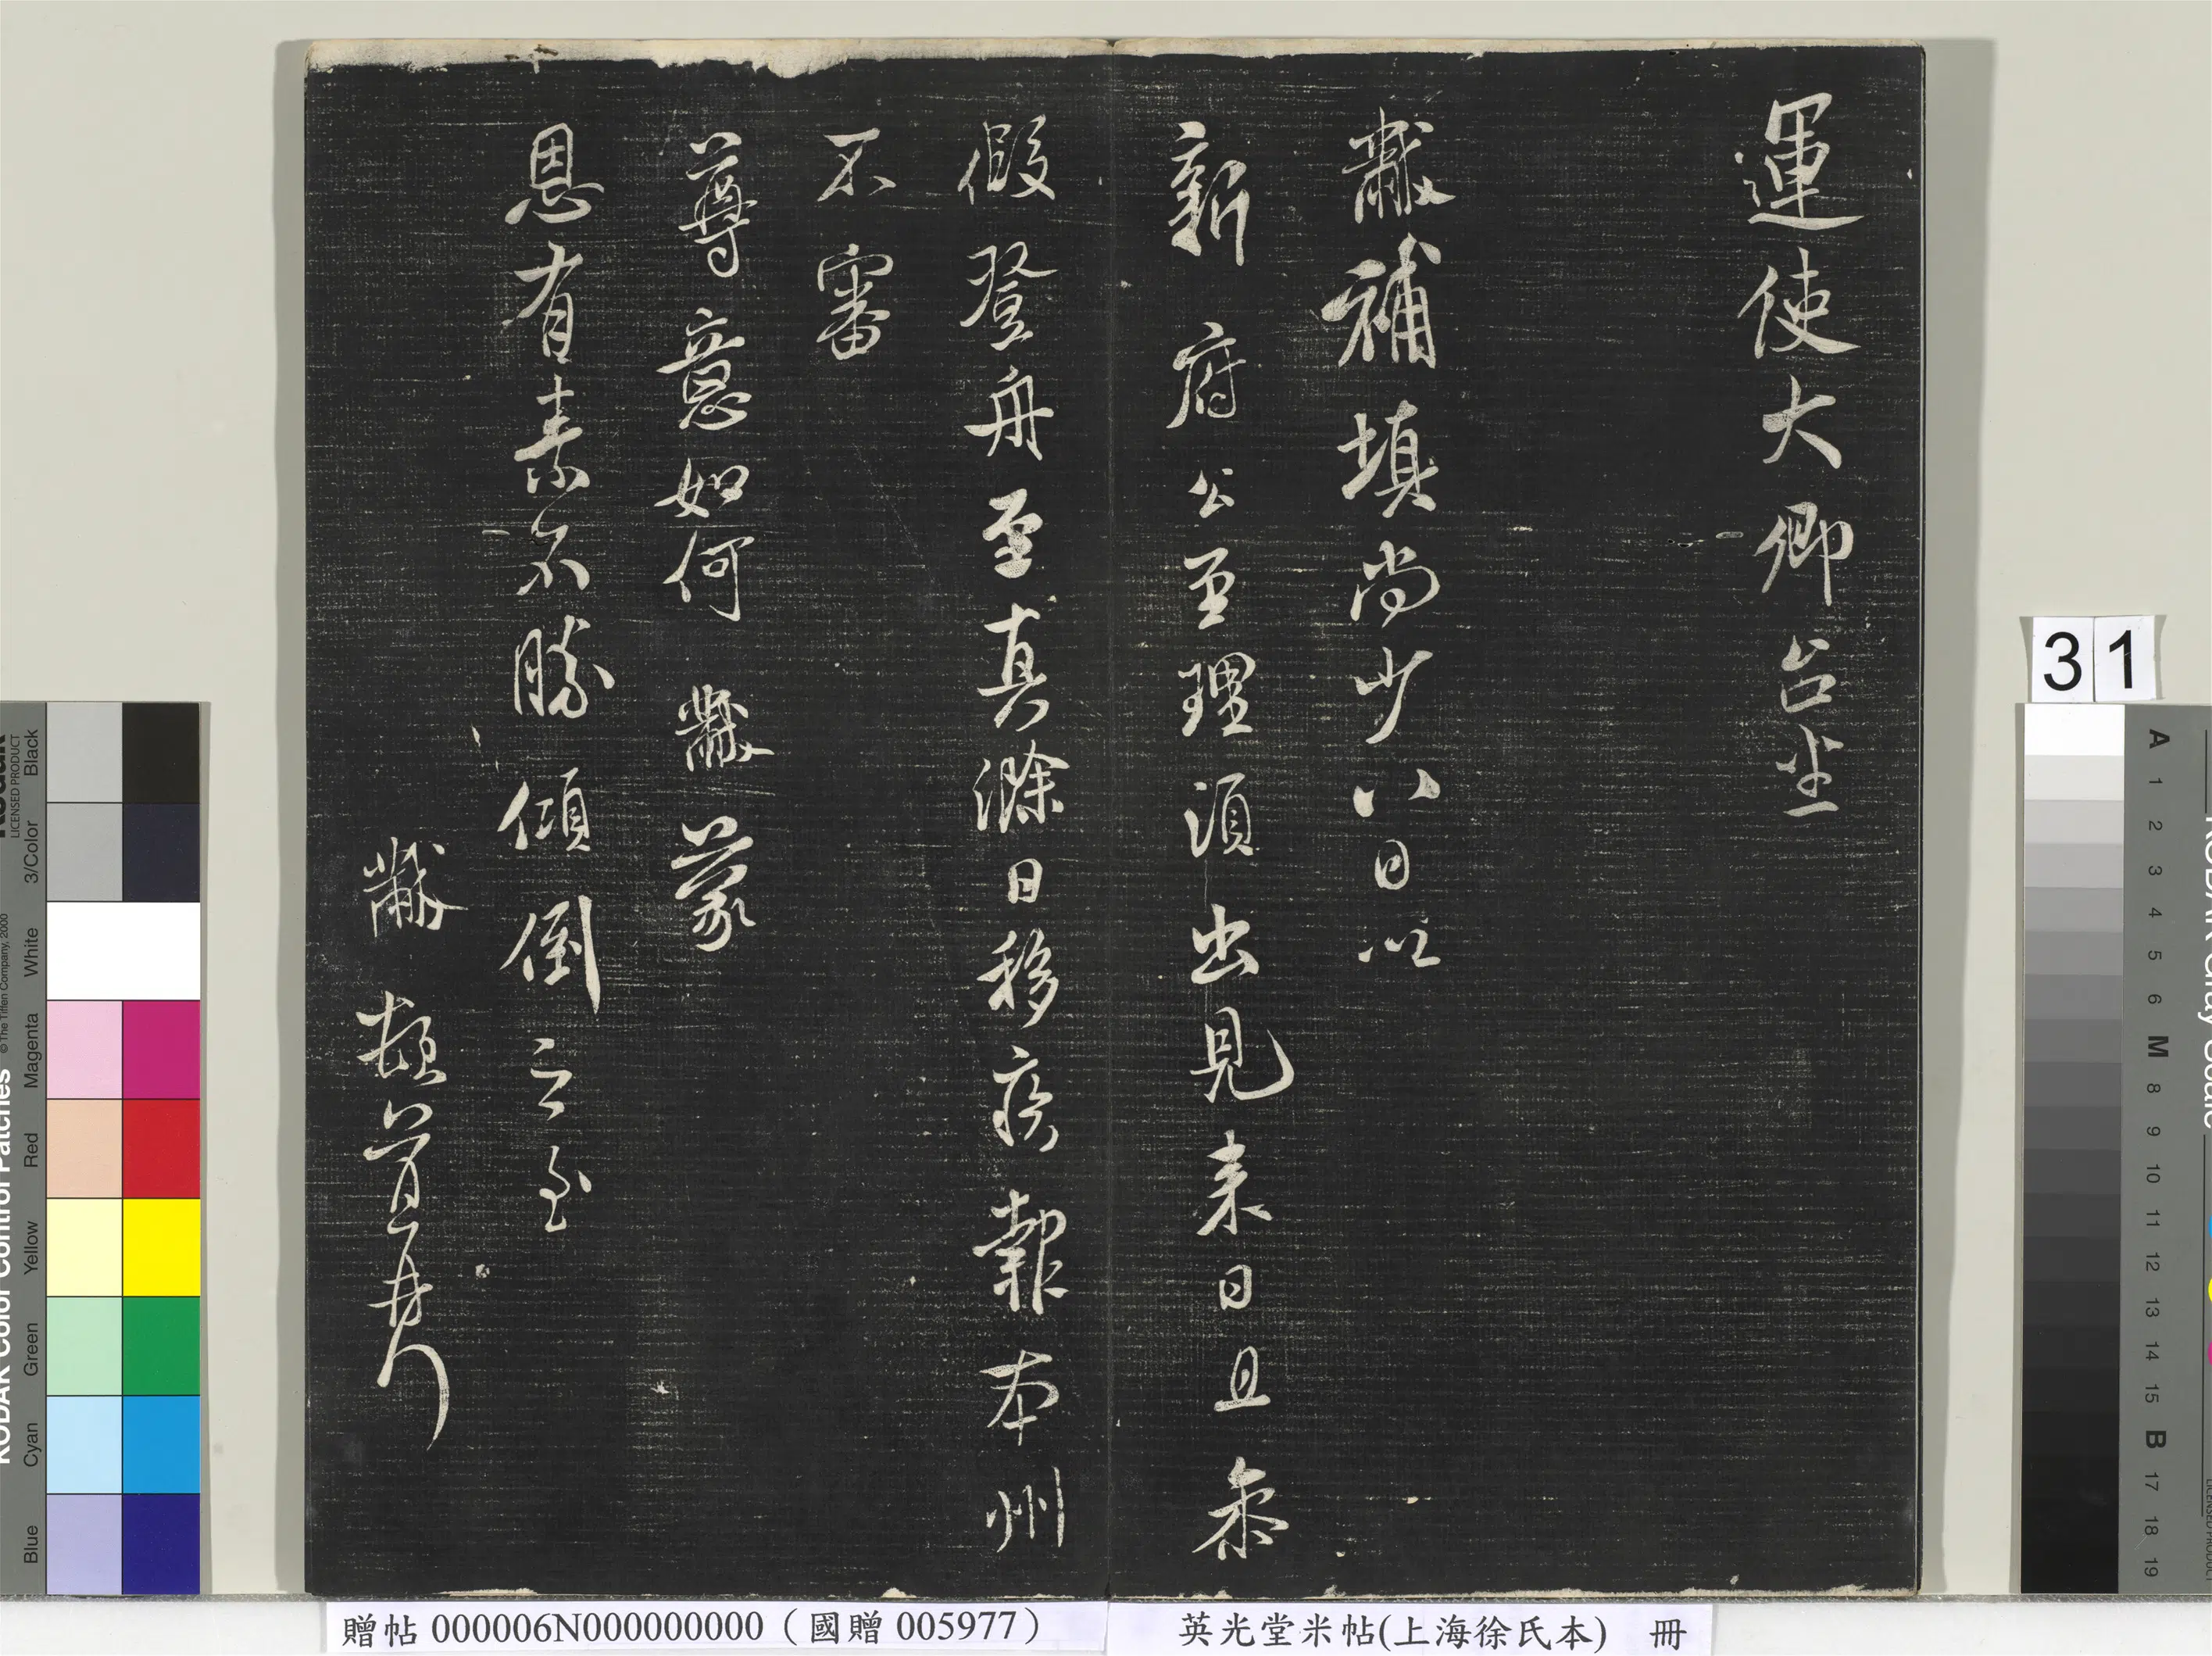 運使大卿台坐
黻補填尚少八日以
新府公至理須出見来日且参
假登舟至真滁日移疾報本州
不審
尊意如何黻蒙
恩有素不勝傾倒之至
黻頓首再拜
31
贈帖 000006N000000000（國贈 005977）
英光堂米帖(上海徐氏本) 冊
KODAK Color Control Patches
LICENSED PRODUCT
© The Tiffen Company, 2000
Blue Cyan Green Yellow Red Magenta White 3/Color Black
A 1 2 3 4 5 6 M 8 9 10 11 12 13 14 15 B 17 18 19